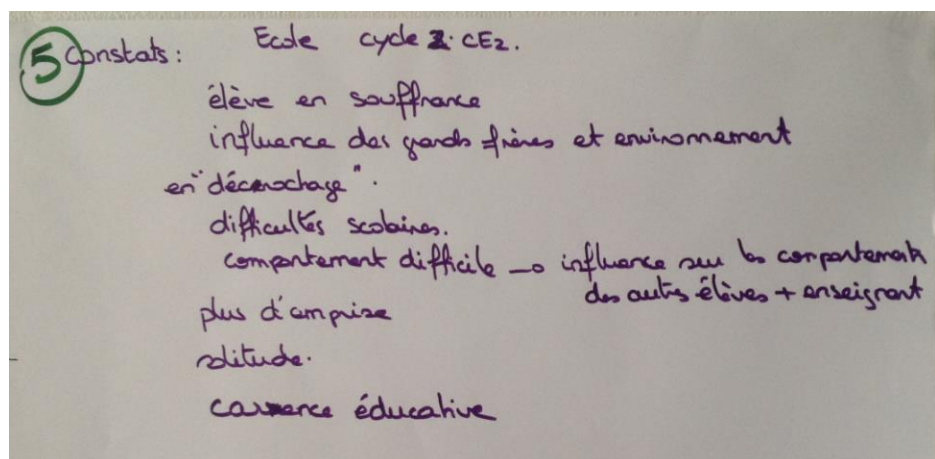 5 Constats : Ecole cycle 2. CE2.
élève en souffrance
influence des grands frères et environnement
en "décrochage".
difficultés scolaires.
comportement difficile → influence sur les comportements
des autres élèves + enseignant
plus d'emprise
solitude.
carence éducative